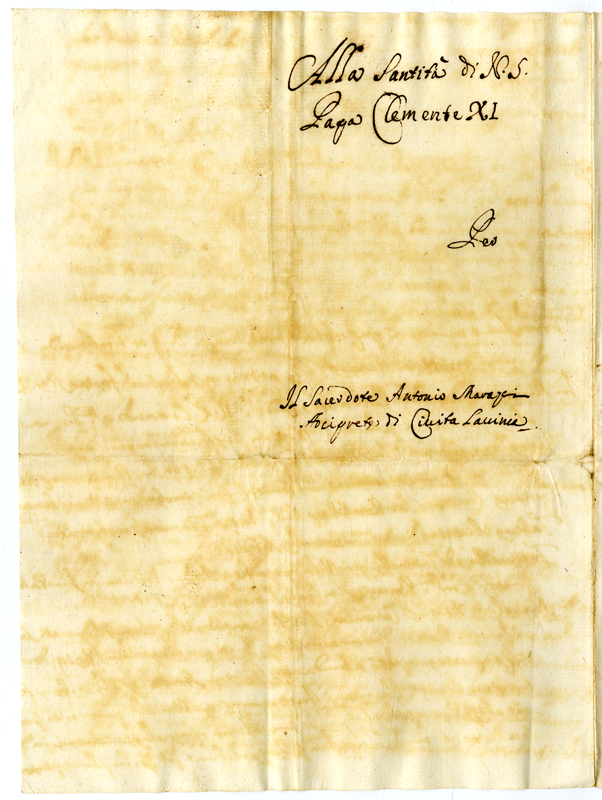 Alla Santità di N. S.
Papa Clemente XI
Per
Il Sacerdote Antonio
Arciprete di Civita Lavinia.